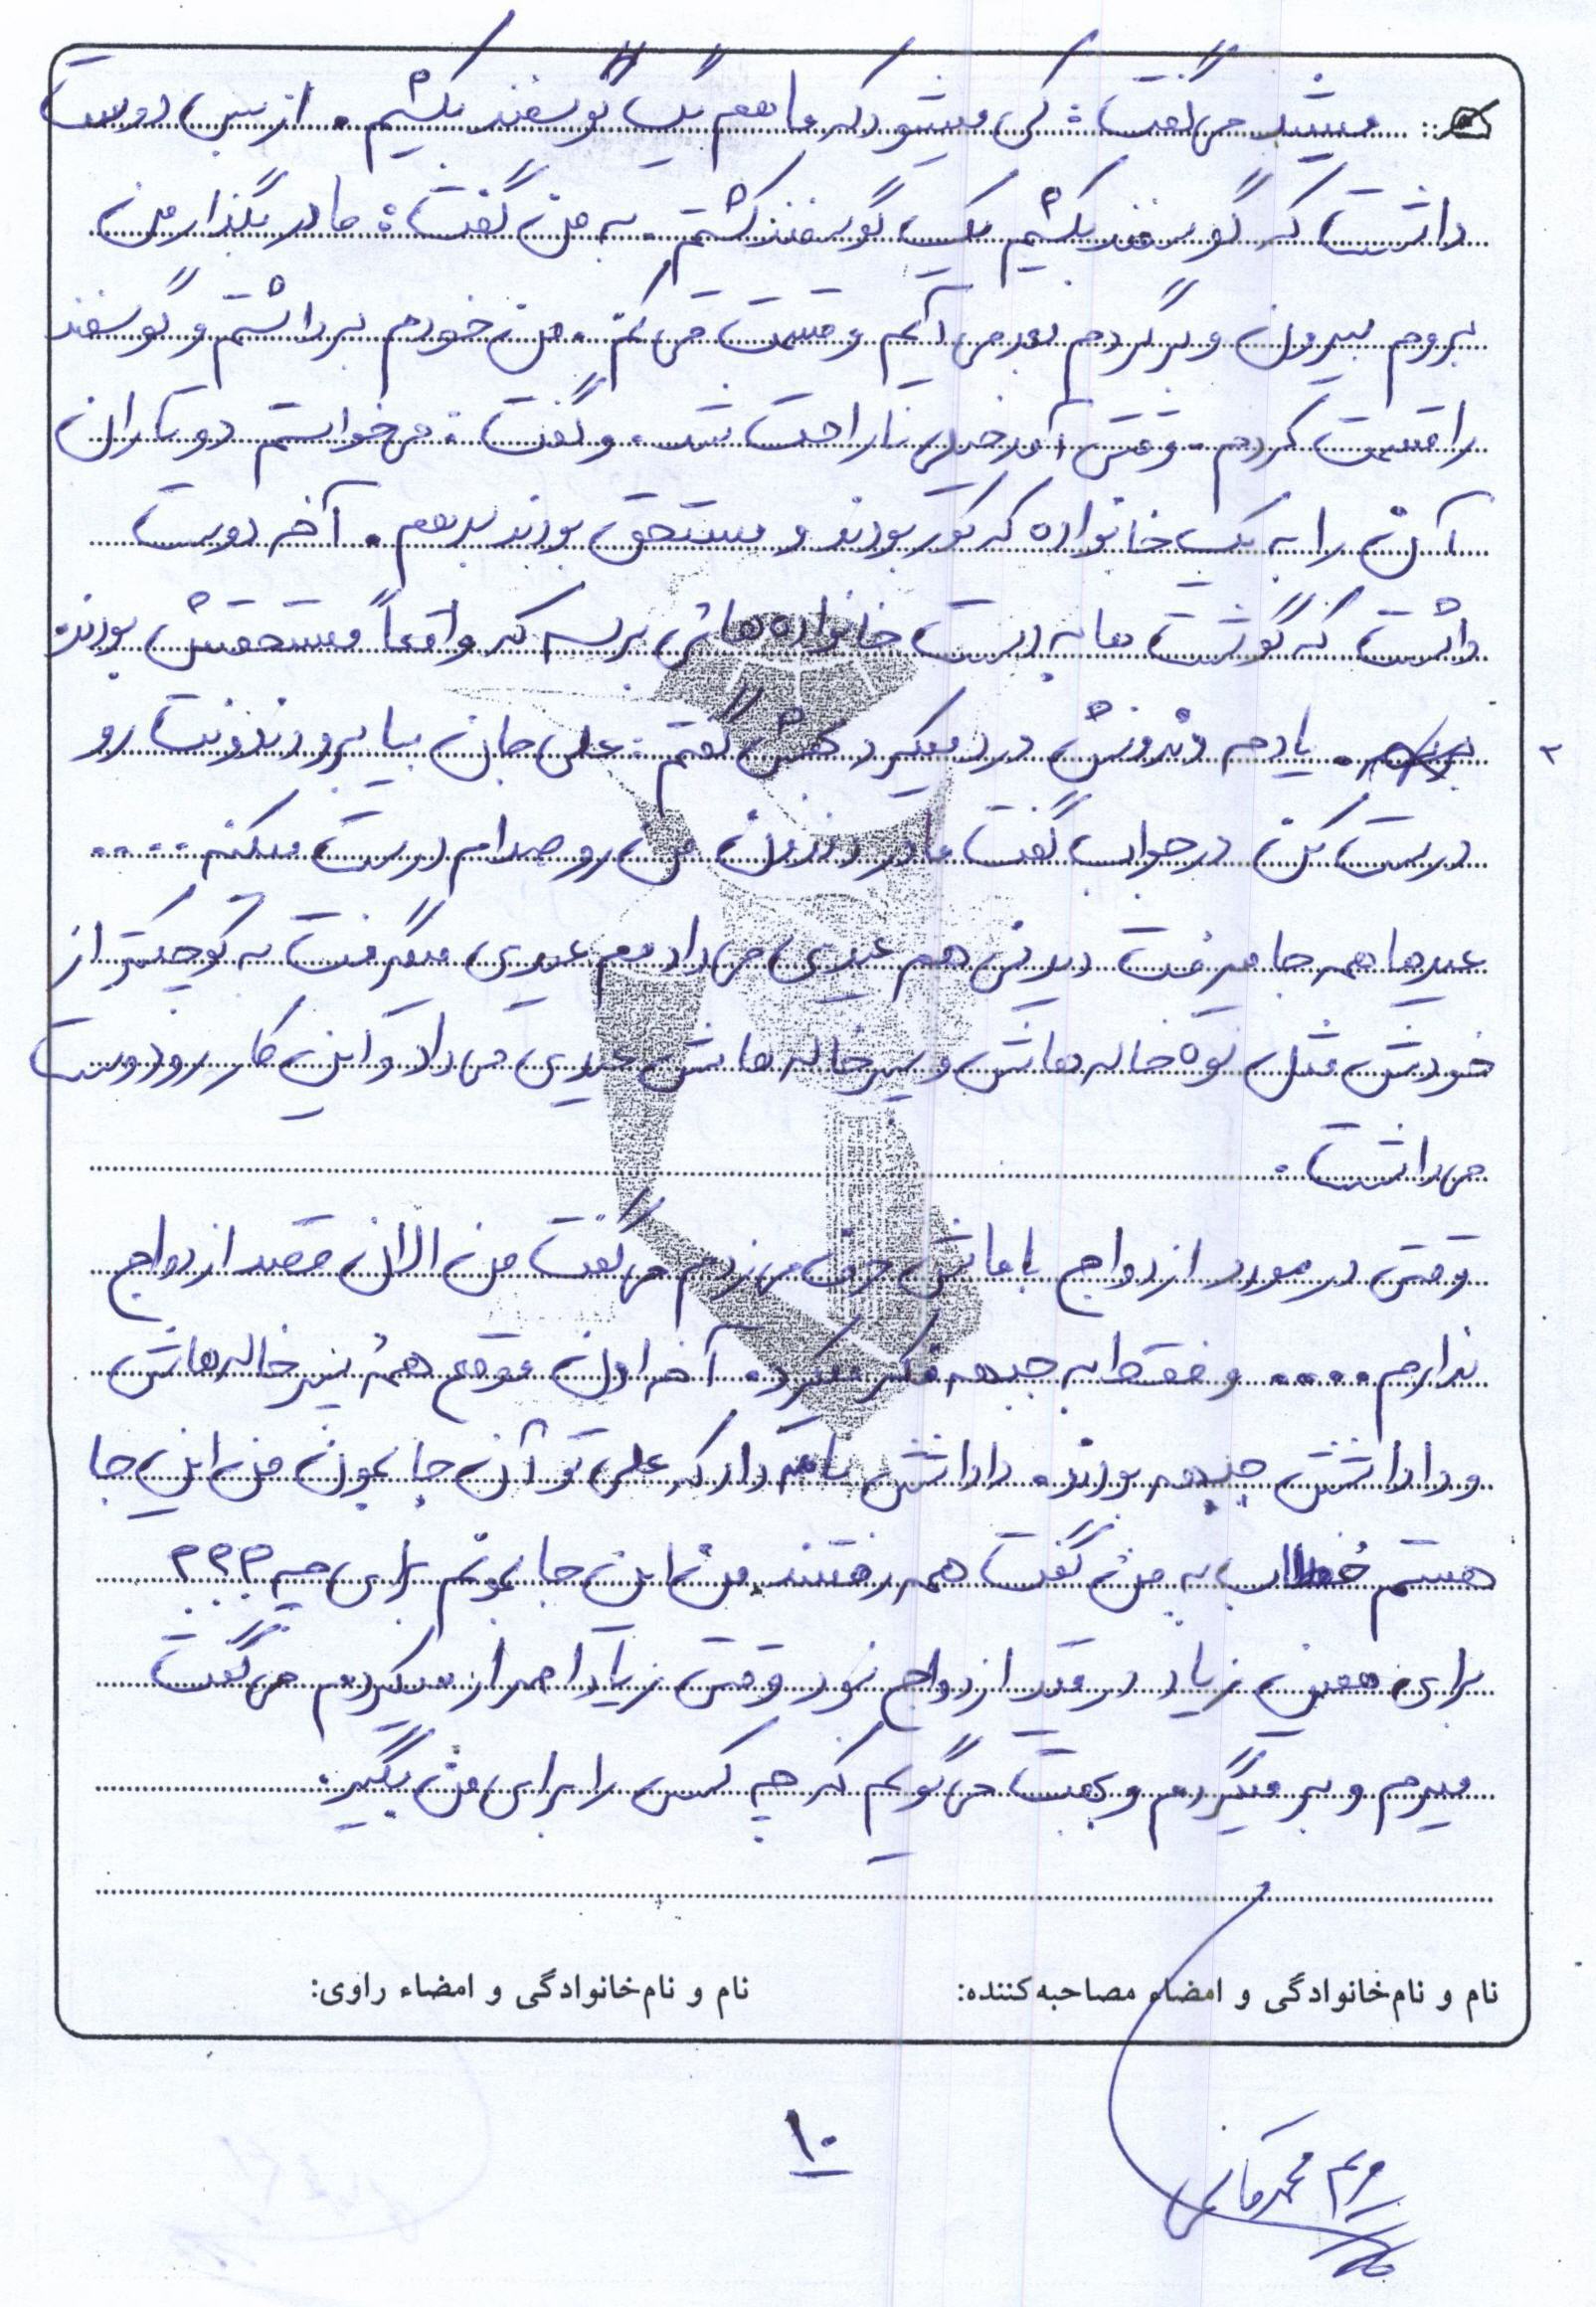 میشد می گفت: کی میشود که ما هم یک گوسفند بکشیم. از بس دوست
داشت که گوسفند بکشیم یک گوسفند کشتم. به من گفت: مادر بگذار من
بروم بیرون و برگردم بعد می آیم و قسمت می کنم. من خودم برداشتم و گوسفند
را قسمت کردم. وقتی آمد خیلی ناراحت شد. و گفت: می خواستم دو تا ران
آن را به یک خانواده که کور بودند و مستحق بودند بدهم. آخر دوست
داشت که گوشت ها به دست خانواده هائی برسه که واقعاً مستحقش بودند.
یادم دندونش درد میکرد بهش گفتم: علی جان بیا برو دندونت رو
درست کن در جواب گفت مادر دندون من رو صدام درست میکنه....
عیدها همه جا میرفت دیدنی هم عیدی می داد هم عیدی میگرفت به کوچیکتر از
خودش مثل نوه خاله هاش و پسرخاله هاش عیدی می داد و این کار رو دوست
می داشت.
وقتی در مورد ازدواج باهاش حرف می زدم می گفت من الان قصد ازدواج
ندارم.... و فقط به جبهه فکر میکرد. آخر اون موقع همه پسرخاله هاش
و داداشش جبهه بودند. داداشش نامه داد که علی تو آن جا بمون من این جا
هستم خطاب به من گفت همه رفتند من این جا بمونم برای چی؟؟؟
برای همین زیاد در قید ازدواج نبود وقتی زیاد اصرار میکردم می گفت
میرم و بر میگردم و بهت می گویم که چه کسی را برای من بگیر.
نام و نام‌خانوادگی و امضاء مصاحبه‌کننده:
نام و نام‌خانوادگی و امضاء راوی:
۱۰
مریم محمدخانی